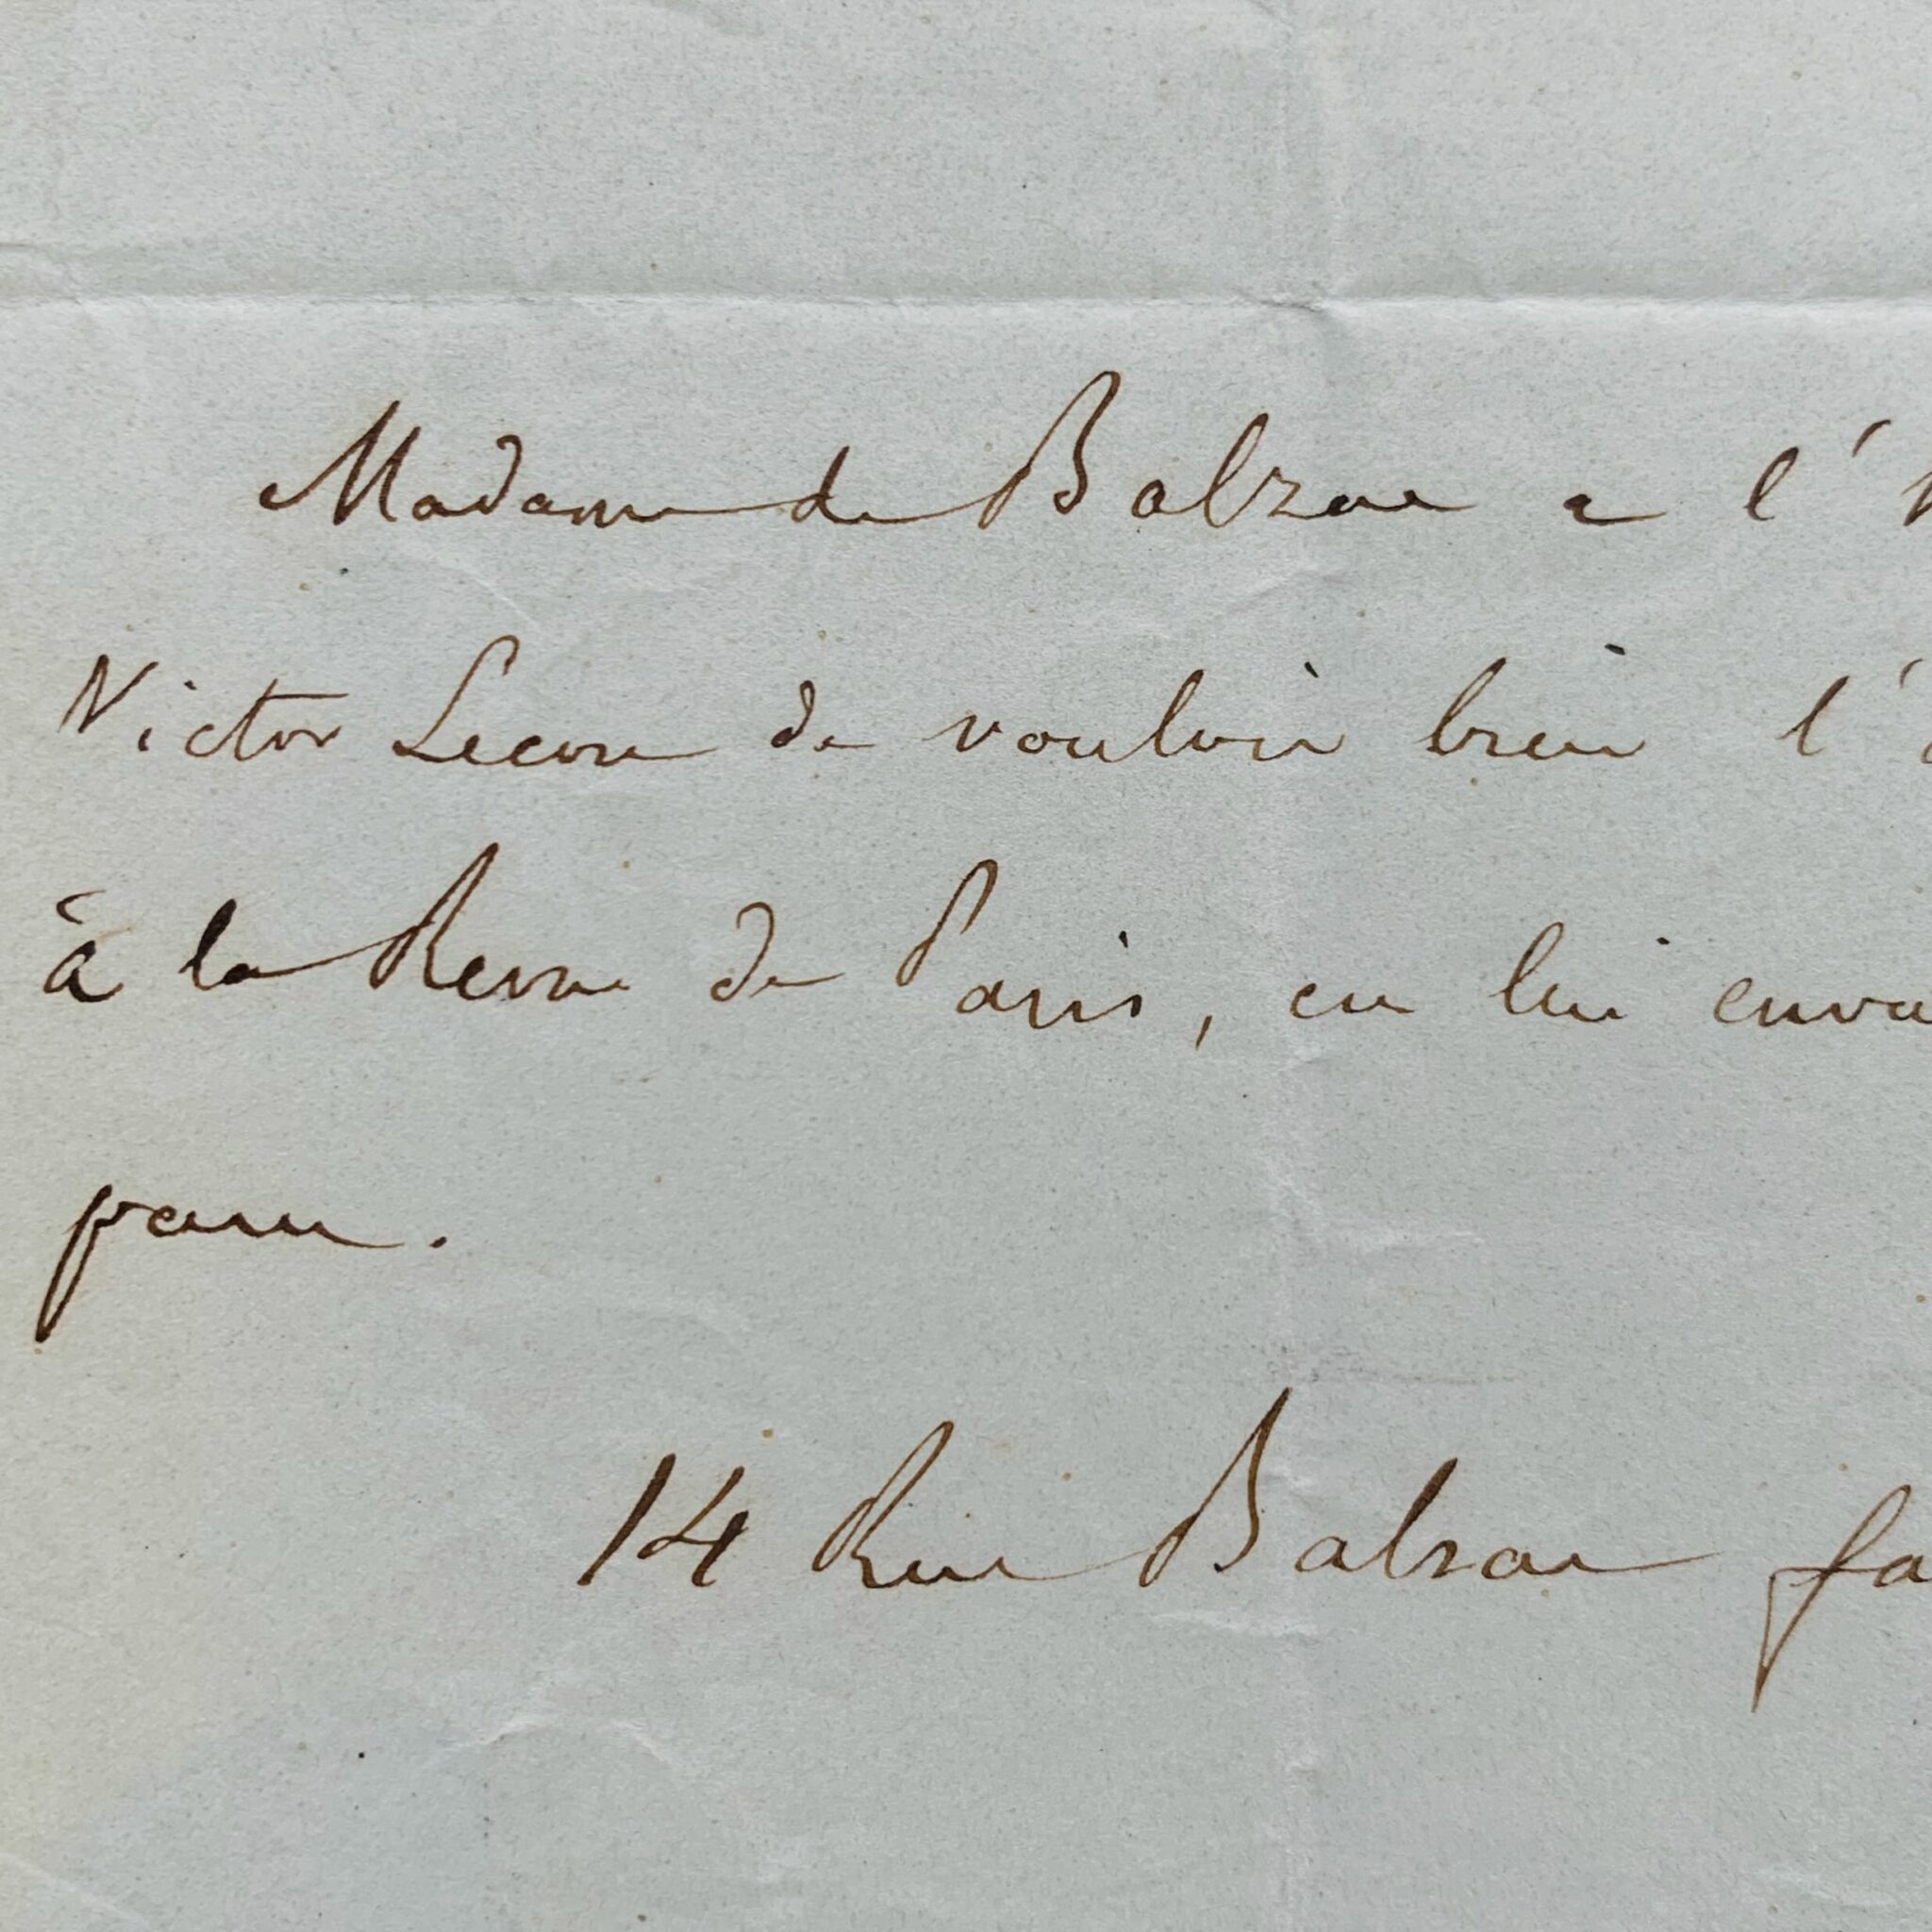 Madame de Balzac a l'h
Victor Lecou de vouloir bien l'a
à la Revue de Paris, en lui envo
paru.
14 Rue Balzac fa